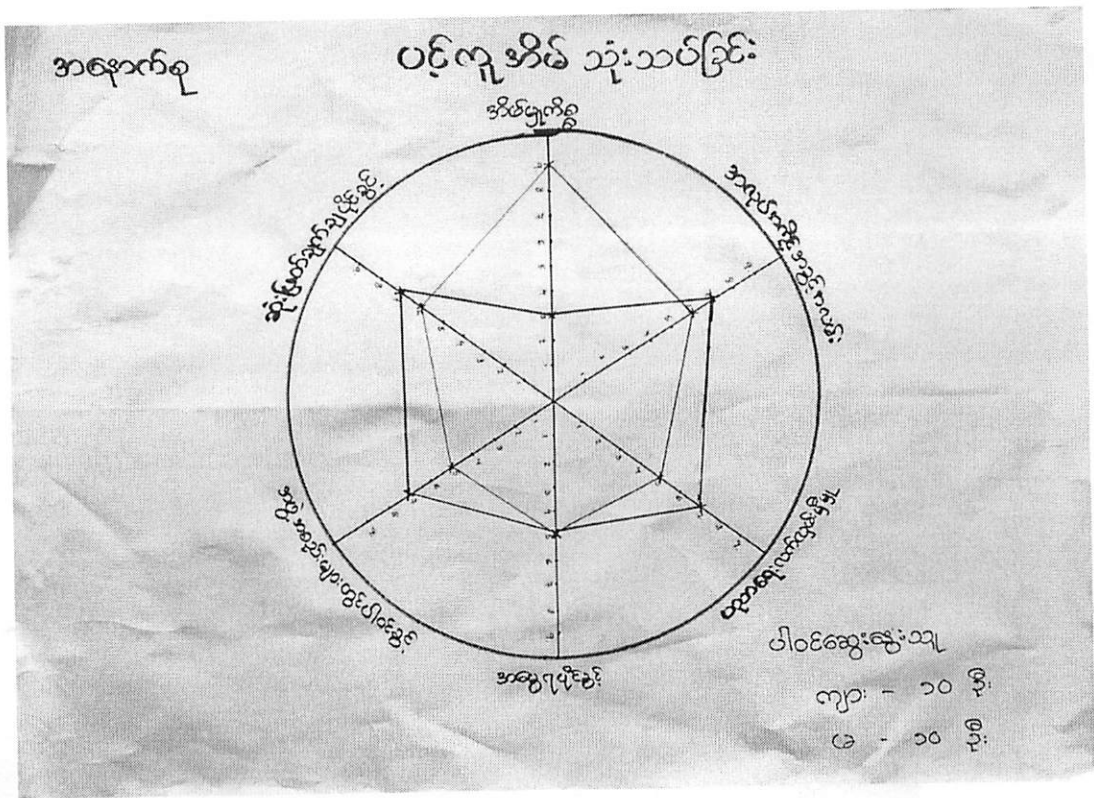 အနောက်စု
ပင့်ကူအိမ် သုံးသပ်ခြင်း
အိမ်မှုကိစ္စ
အလုပ်အကိုင်အခွင့်အလမ်း
ပညာရေးလက်လှမ်းမှီမှု
အမွေရပိုင်ခွင့်
အဖွဲ့အစည်းများတွင်ပါဝင်ခွင့်
ဆုံးဖြတ်ချက်ချပိုင်ခွင့်
ပါဝင်ဆွေးနွေးသူ
ကျား - ၁၀ ဦး
မ - ၁၀ ဦး